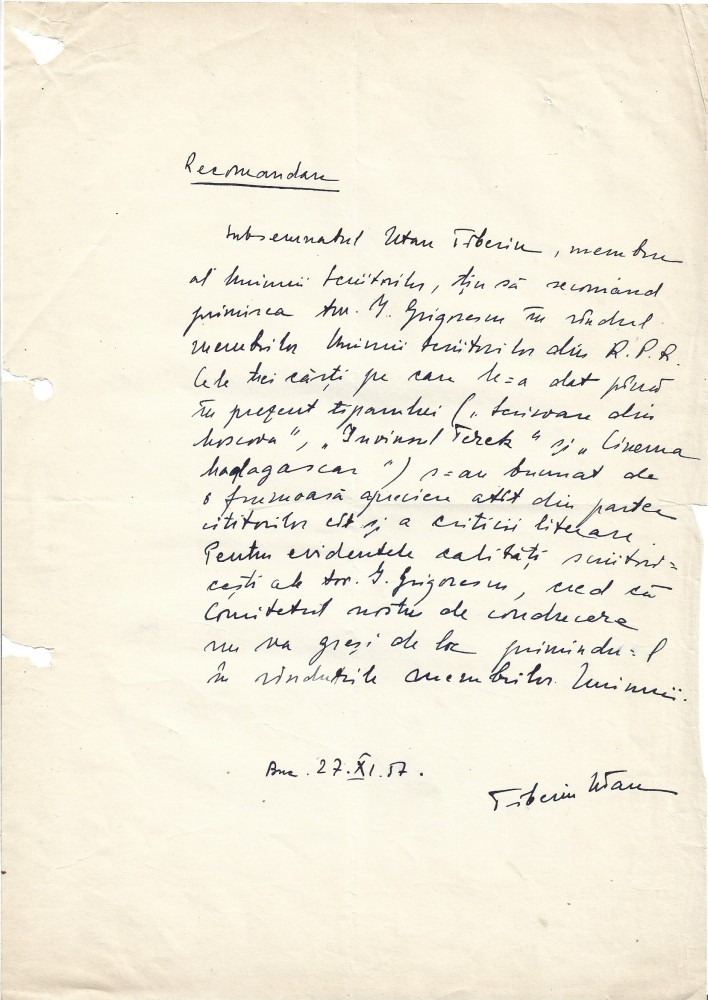 Recomandare
Subsemnatul Utan Tiberiu, membru
al Uniunii Scriitorilor, țin să recomand
primirea tov. I. Grigorescu în rîndul
membrilor Uniunii Scriitorilor din R.P.R.
Cele trei cărți pe care le=a dat pînă
în prezent tiparului („Scrisoare din
Moscova", „Învinsul Terek" și „Cinema
Madagascar") s=au bucurat de
o frumoasă apreciere atît din partea
cititorilor cît și a criticii literare.
Pentru evidentele calități scriitori=
cești ale tov. I. Grigorescu, cred că
Comitetul nostru de conducere
nu va greși de loc primindu=l
în rîndurile membrilor Uniunii.
Buc. 27.XI.57.
Tiberiu Utan